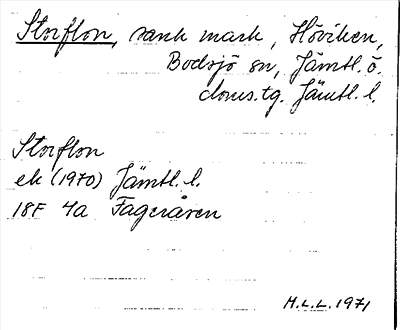 Storflon, sank mark, Höviken,
Bodsjö sn, Jämtl. ö.
doms.tg. Jämtl. l.
Storflon
ek (1970) Jämtl. l.
18F 4a Fageråsen
H.L.L. 1971